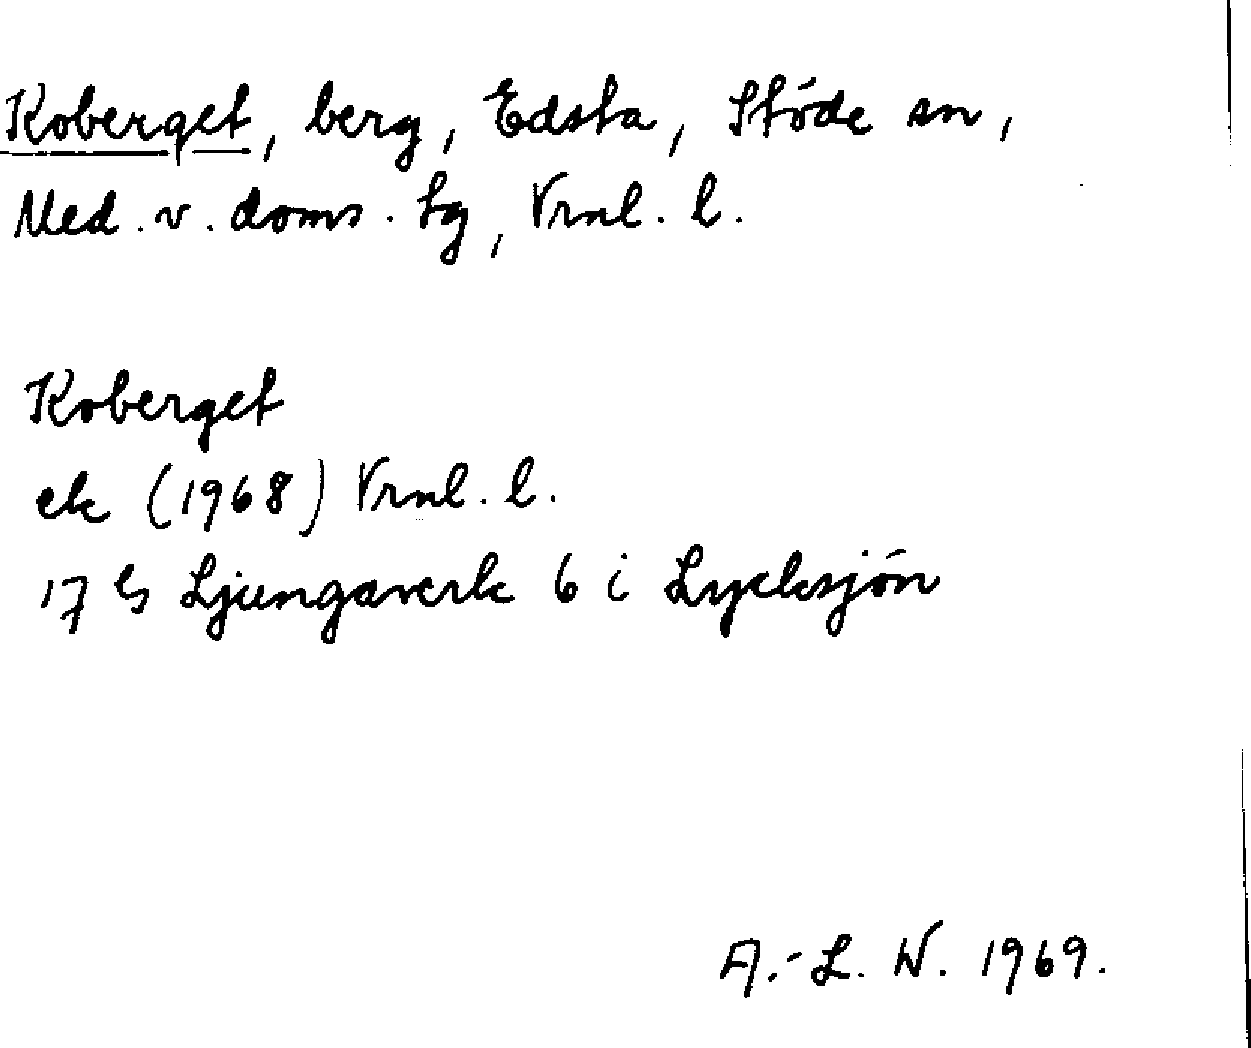 Koberget, berg, Edsta, Stöde sn,
Med. v. doms. tg, Vrnl. l.
Koberget
ek (1968) Vrnl. l.
17 G Ljungaverk 6 i Lycksjön
A.-L. N. 1969.